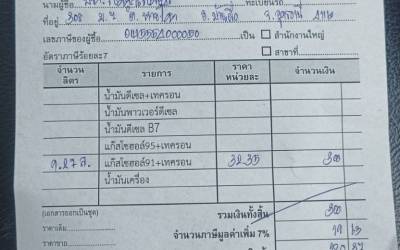 นามผู้ซื้อ ทะเบียนรถ
ที่อยู่ 308 ม.7
เลขภาษีของผู้ซื้อ เป็น สำนักงานใหญ่
อัตราภาษีร้อยละ7 สาขาที่
จำนวนลิตร รายการ ราคาหน่วยละ จำนวนเงิน
น้ำมันดีเซล+เทครอน
น้ำมันพาวเวอร์ดีเซล
น้ำมันดีเซล B7
แก๊สโซฮอล์95+เทครอน
9.27 ล. แก๊สโซฮอล์91+เทครอน 32.35 300
น้ำมันเครื่อง
(เอกสารออกเป็นชุด) รวมเงินทั้งสิ้น 300
ราคาเดิม จำนวนภาษีมูลค่าเพิ่ม 7% 19 63
ราคาขาย